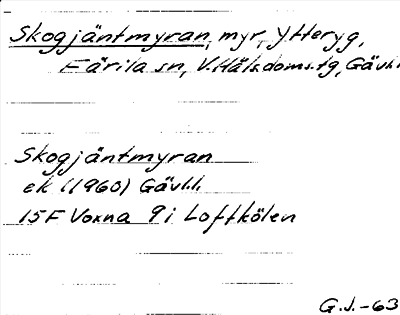 Skogjäntmyran, myr, Ytteryg,
Färila sn, V. Häls. doms.tg, Gävl.l.
Skogjäntmyran
ek (1960) Gävl.l.
15F Voxna 9 i Loftkölen
G.J.-63